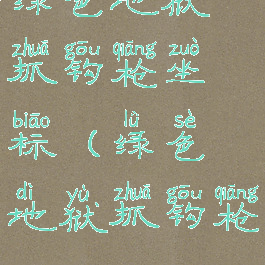 绿色地狱
zhuā gōu qiāng zuò
抓钩枪坐
biāo lǜ sè
标（绿色
dì yù zhuā gōu qiāng
地狱抓钩枪